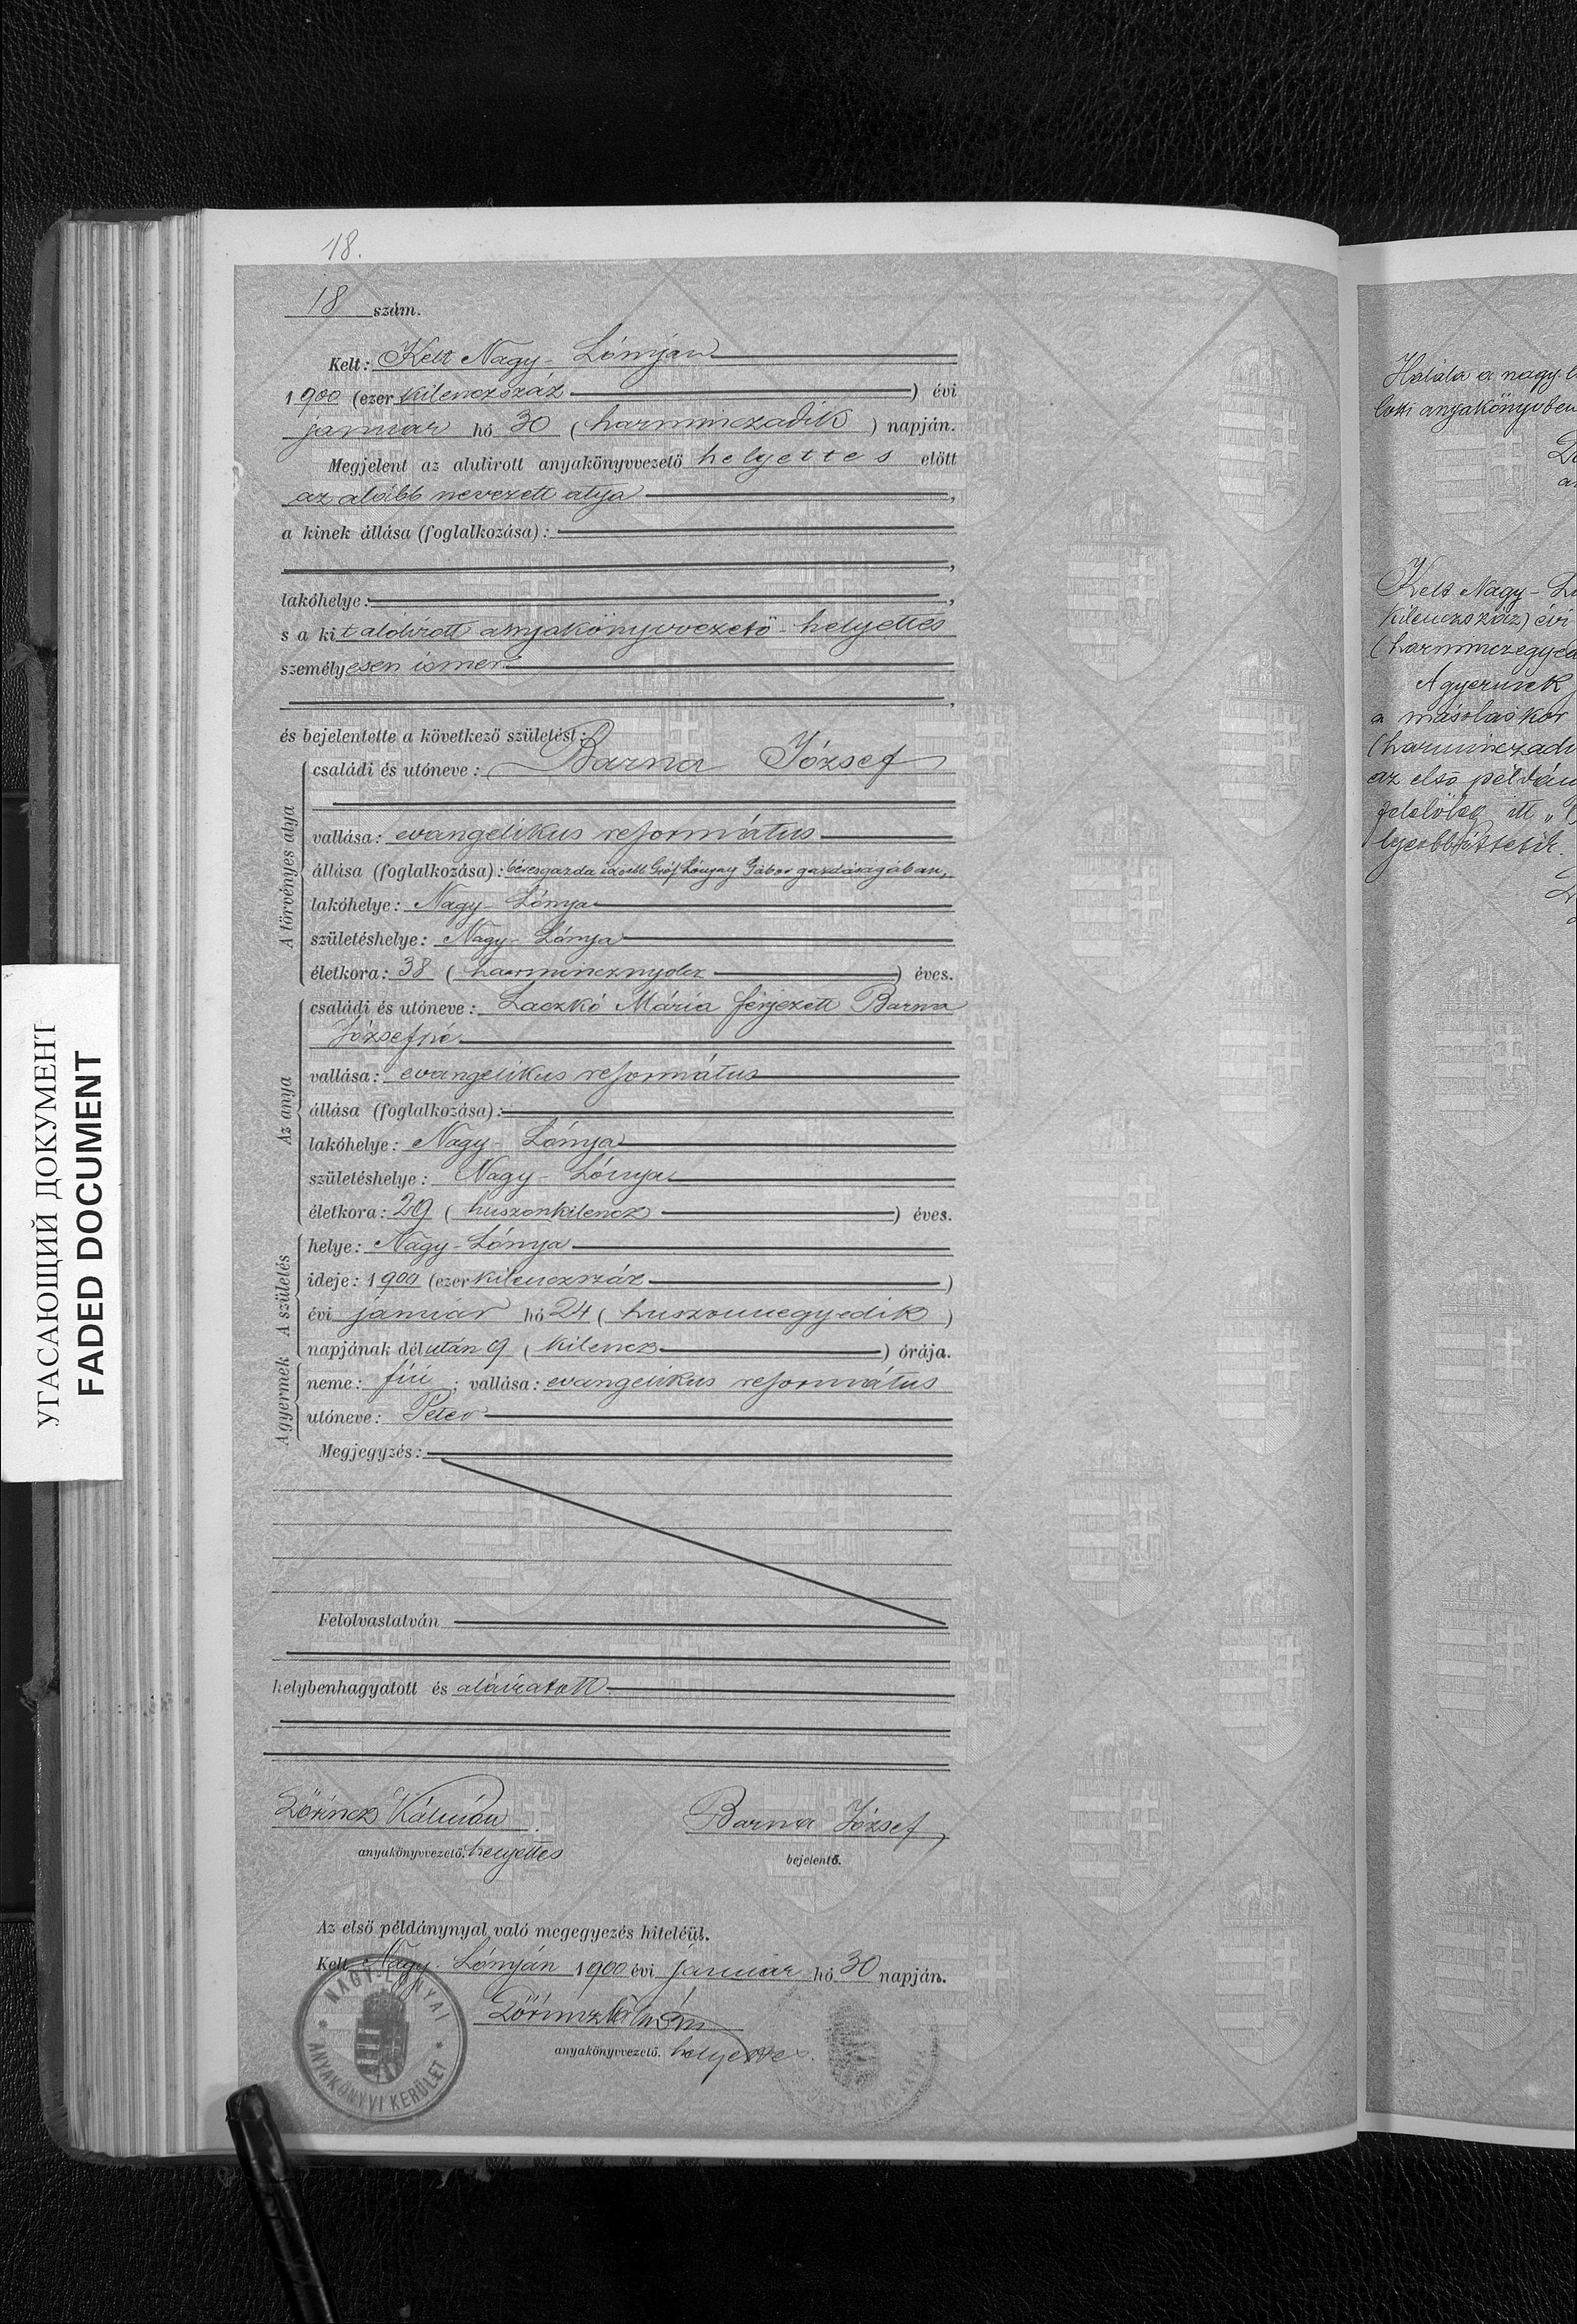 18.
18 szám.
Kelt: Kelt Nagy-Lónyán
1900 (ezer kilenczszáz) évi
január hó 30 (harminczadik) napján.
Megjelent az alulirott anyakönyvvezető helyettes előtt
az alább nevezett atya,
a kinek állása (foglalkozása):
,
lakóhelye: ,
s a kit alólirott anyakönyvvezető-helyettes
személyesen ismer
,
és bejelentette a következő születést:
A törvényes atya
családi és utóneve: Barna József
vallása: evangelikus református
állása (foglalkozása): béresgazda idősb Gróf Lónyay Gábor gazdaságában,
lakóhelye: Nagy-Lónya
születéshelye: Nagy-Lónya
életkora: 38 (harmincznyolcz) éves.
Az anya
családi és utóneve: Laczkó Mária férjezett Barna
Józsefné
vallása: evangelikus református
állása (foglalkozása):
lakóhelye: Nagy-Lónya
születéshelye: Nagy-Lónya
életkora: 29 (huszonkilencz) éves.
A születés
helye: Nagy-Lónya
ideje: 1900 (ezer kilenczszáz)
évi január hó 24 (huszonnegyedik)
napjának délután 9 (kilencz) órája.
A gyermek
neme: fiú; vallása: evangelikus református
utóneve: Péter
Megjegyzés:
Felolvastatván
helybenhagyatott és aláiratott.
Lőrincz Kálmán. Barna József
anyakönyvvezető. helyettes bejelentő.
Az első példánynyal való megegyezés hiteléül.
Kelt Nagy-Lónyán 1900 évi január hó 30 napján.
Lőrincz Kálmán
anyakönyvvezető. helyettes.
NAGY-LÓNYAI * ANYAKÖNYVI KERÜLET *
УГАСАЮЩИЙ ДОКУМЕНТ
FADED DOCUMENT
Halála a nagy
anyakönyvben
Kelt Nagy-
kilenczszáz) évi
A gyermek
a másoláskor
az első
itt